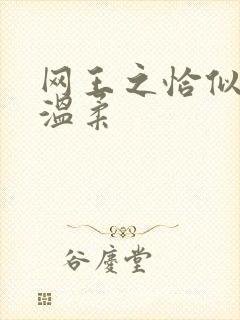 网王之恰似
温柔
谷庆堂